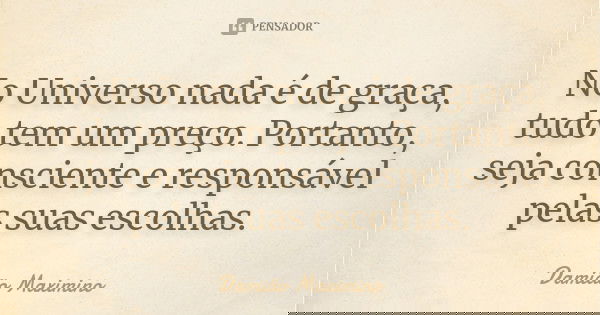 PENSADOR
No Universo nada é de graça,
tudo tem um preço. Portanto,
seja consciente e responsável
pelas suas escolhas.
Damião Maximino